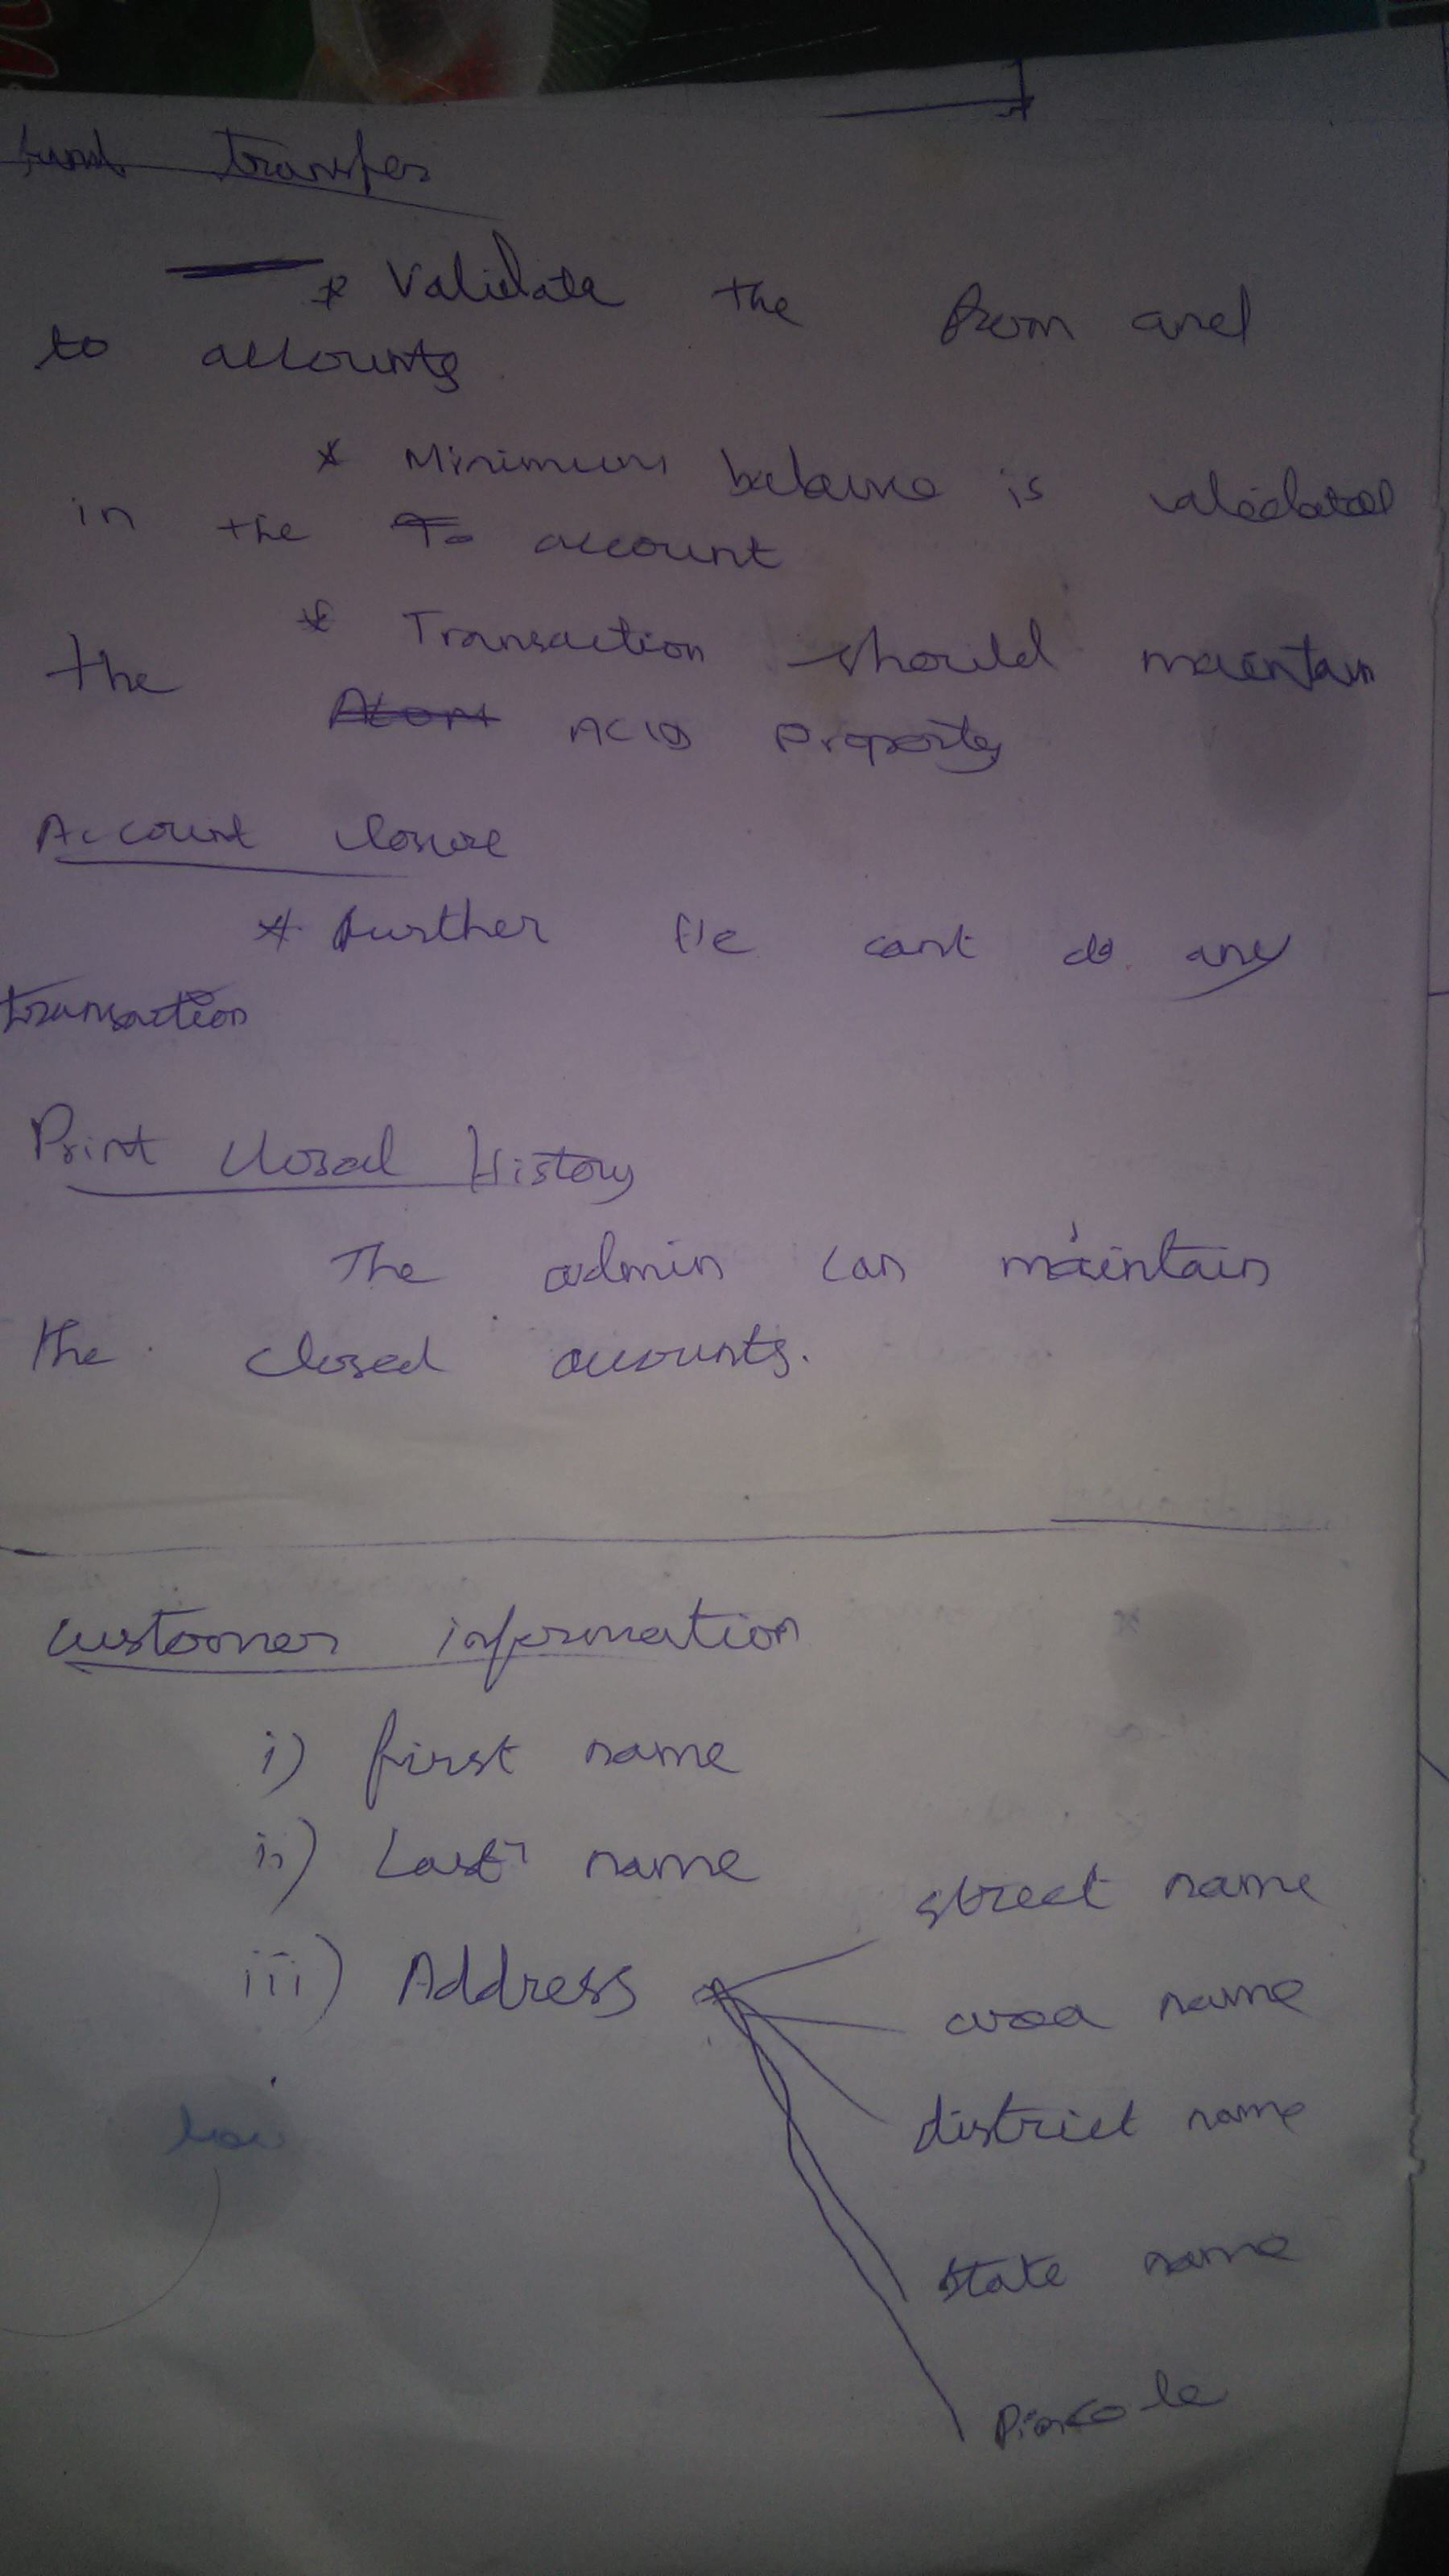 fund transfer
* Validate the from and
to accounts
* Minimum balance is validated
in the To account
* Transaction should maintain
the Atom ACID Property
Account closure
* further He cant do any
transaction
Print closed History
The admin can maintain
the closed accounts.
customer information
i) first name
ii) Last name
iii) Address
street name
area name
district name
state name
Pincode